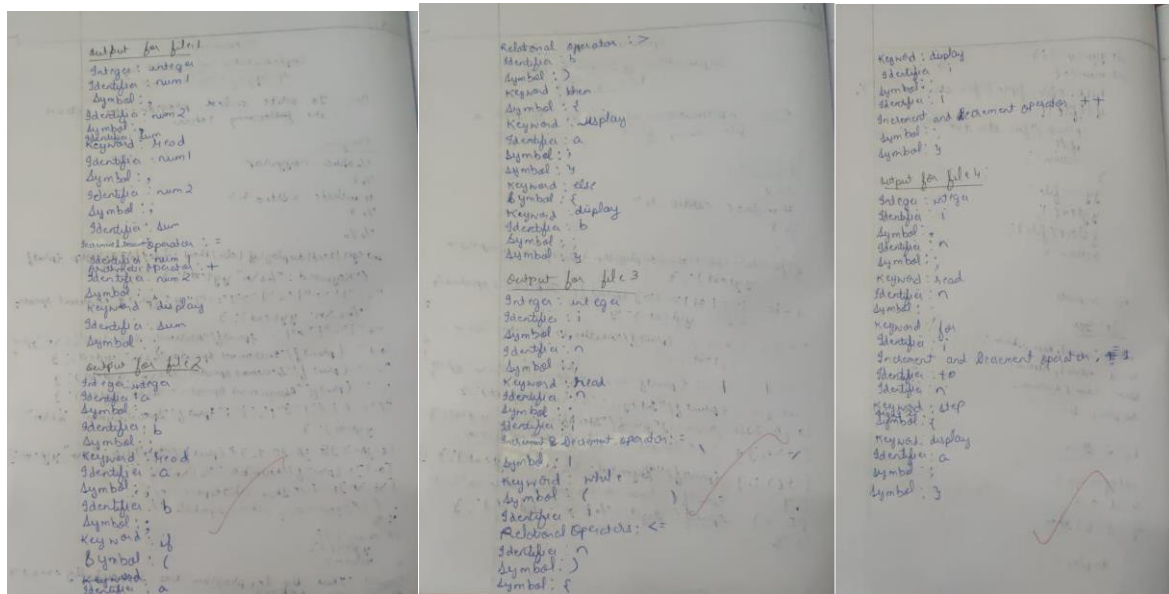 Output for file1
Integer: integer
Identifier: num1
Symbol: ,
Identifier: num2
Symbol: ,
Identifier: sum
Keyword: read
Identifier: num1
Symbol: ,
Identifier: num2
Symbol: ;
Identifier: sum
operator: =
Identifier: num1
Arithmetic operator: +
Identifier: num2
Symbol: ;
Keyword: display
Identifier: sum
Symbol: ;
Output for file2:
Integer: integer
Identifier: a
Symbol: ,
Identifier: b
Symbol: ;
Keyword: read
Identifier: a
Symbol: ,
Identifier: b
Symbol: ;
Keyword: if
Symbol: (
Keyword
Identifier: a
Relational operator: >
Identifier: b
Symbol: )
Keyword: then
Symbol: {
Keyword: display
Identifier: a
Symbol: ;
Symbol: }
Keyword: else
Symbol: {
Keyword: display
Identifier: b
Symbol: ;
Symbol: }
Output for file 3
Integer: integer
Identifier: i
Symbol: ,
Identifier: n
Symbol: ;
Keyword: read
Identifier: n
Symbol: ;
Identifier: i
Increment & Decrement operator: =
Symbol: 1
Keyword: while
Symbol: (
Identifier: i
Relational Operators: <=
Identifier: n
Symbol: )
Symbol: {
Keyword: display
Identifier: i
Symbol: ;
Identifier: i
Increment and Decrement operator: ++
Symbol: ;
Symbol: }
Output for file 4:
Integer: integer
Identifier: i
Symbol: ,
Identifier: n
Symbol: ;
Keyword: read
Identifier: n
Symbol: ;
Keyword: for
Identifier: i
Increment and Decrement operator: = 1
Identifier: to
Identifier: n
Keyword: step
Symbol: {
Keyword: display
Identifier: a
Symbol: ;
Symbol: }